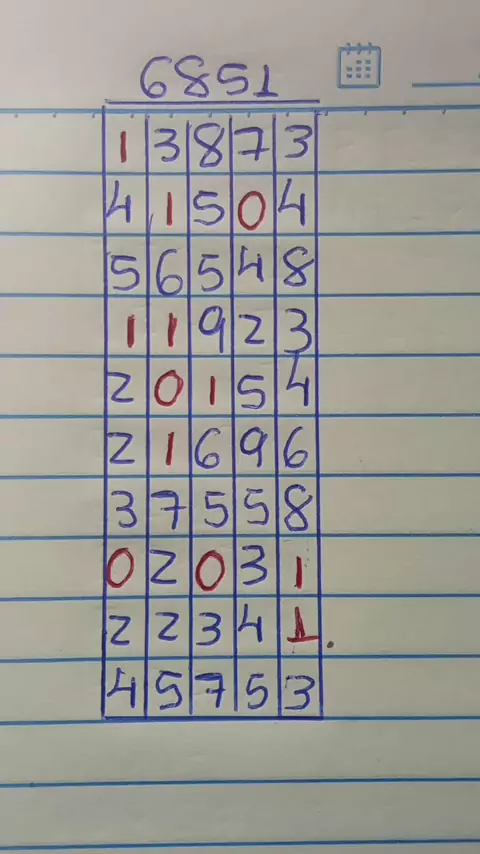 6851
1 3 8 7 3
4 1 5 0 4
5 6 5 4 8
1 1 9 2 3
2 0 1 5 4
2 1 6 9 6
3 7 5 5 8
0 2 0 3 1
2 2 3 4 1.
4 5 7 5 3